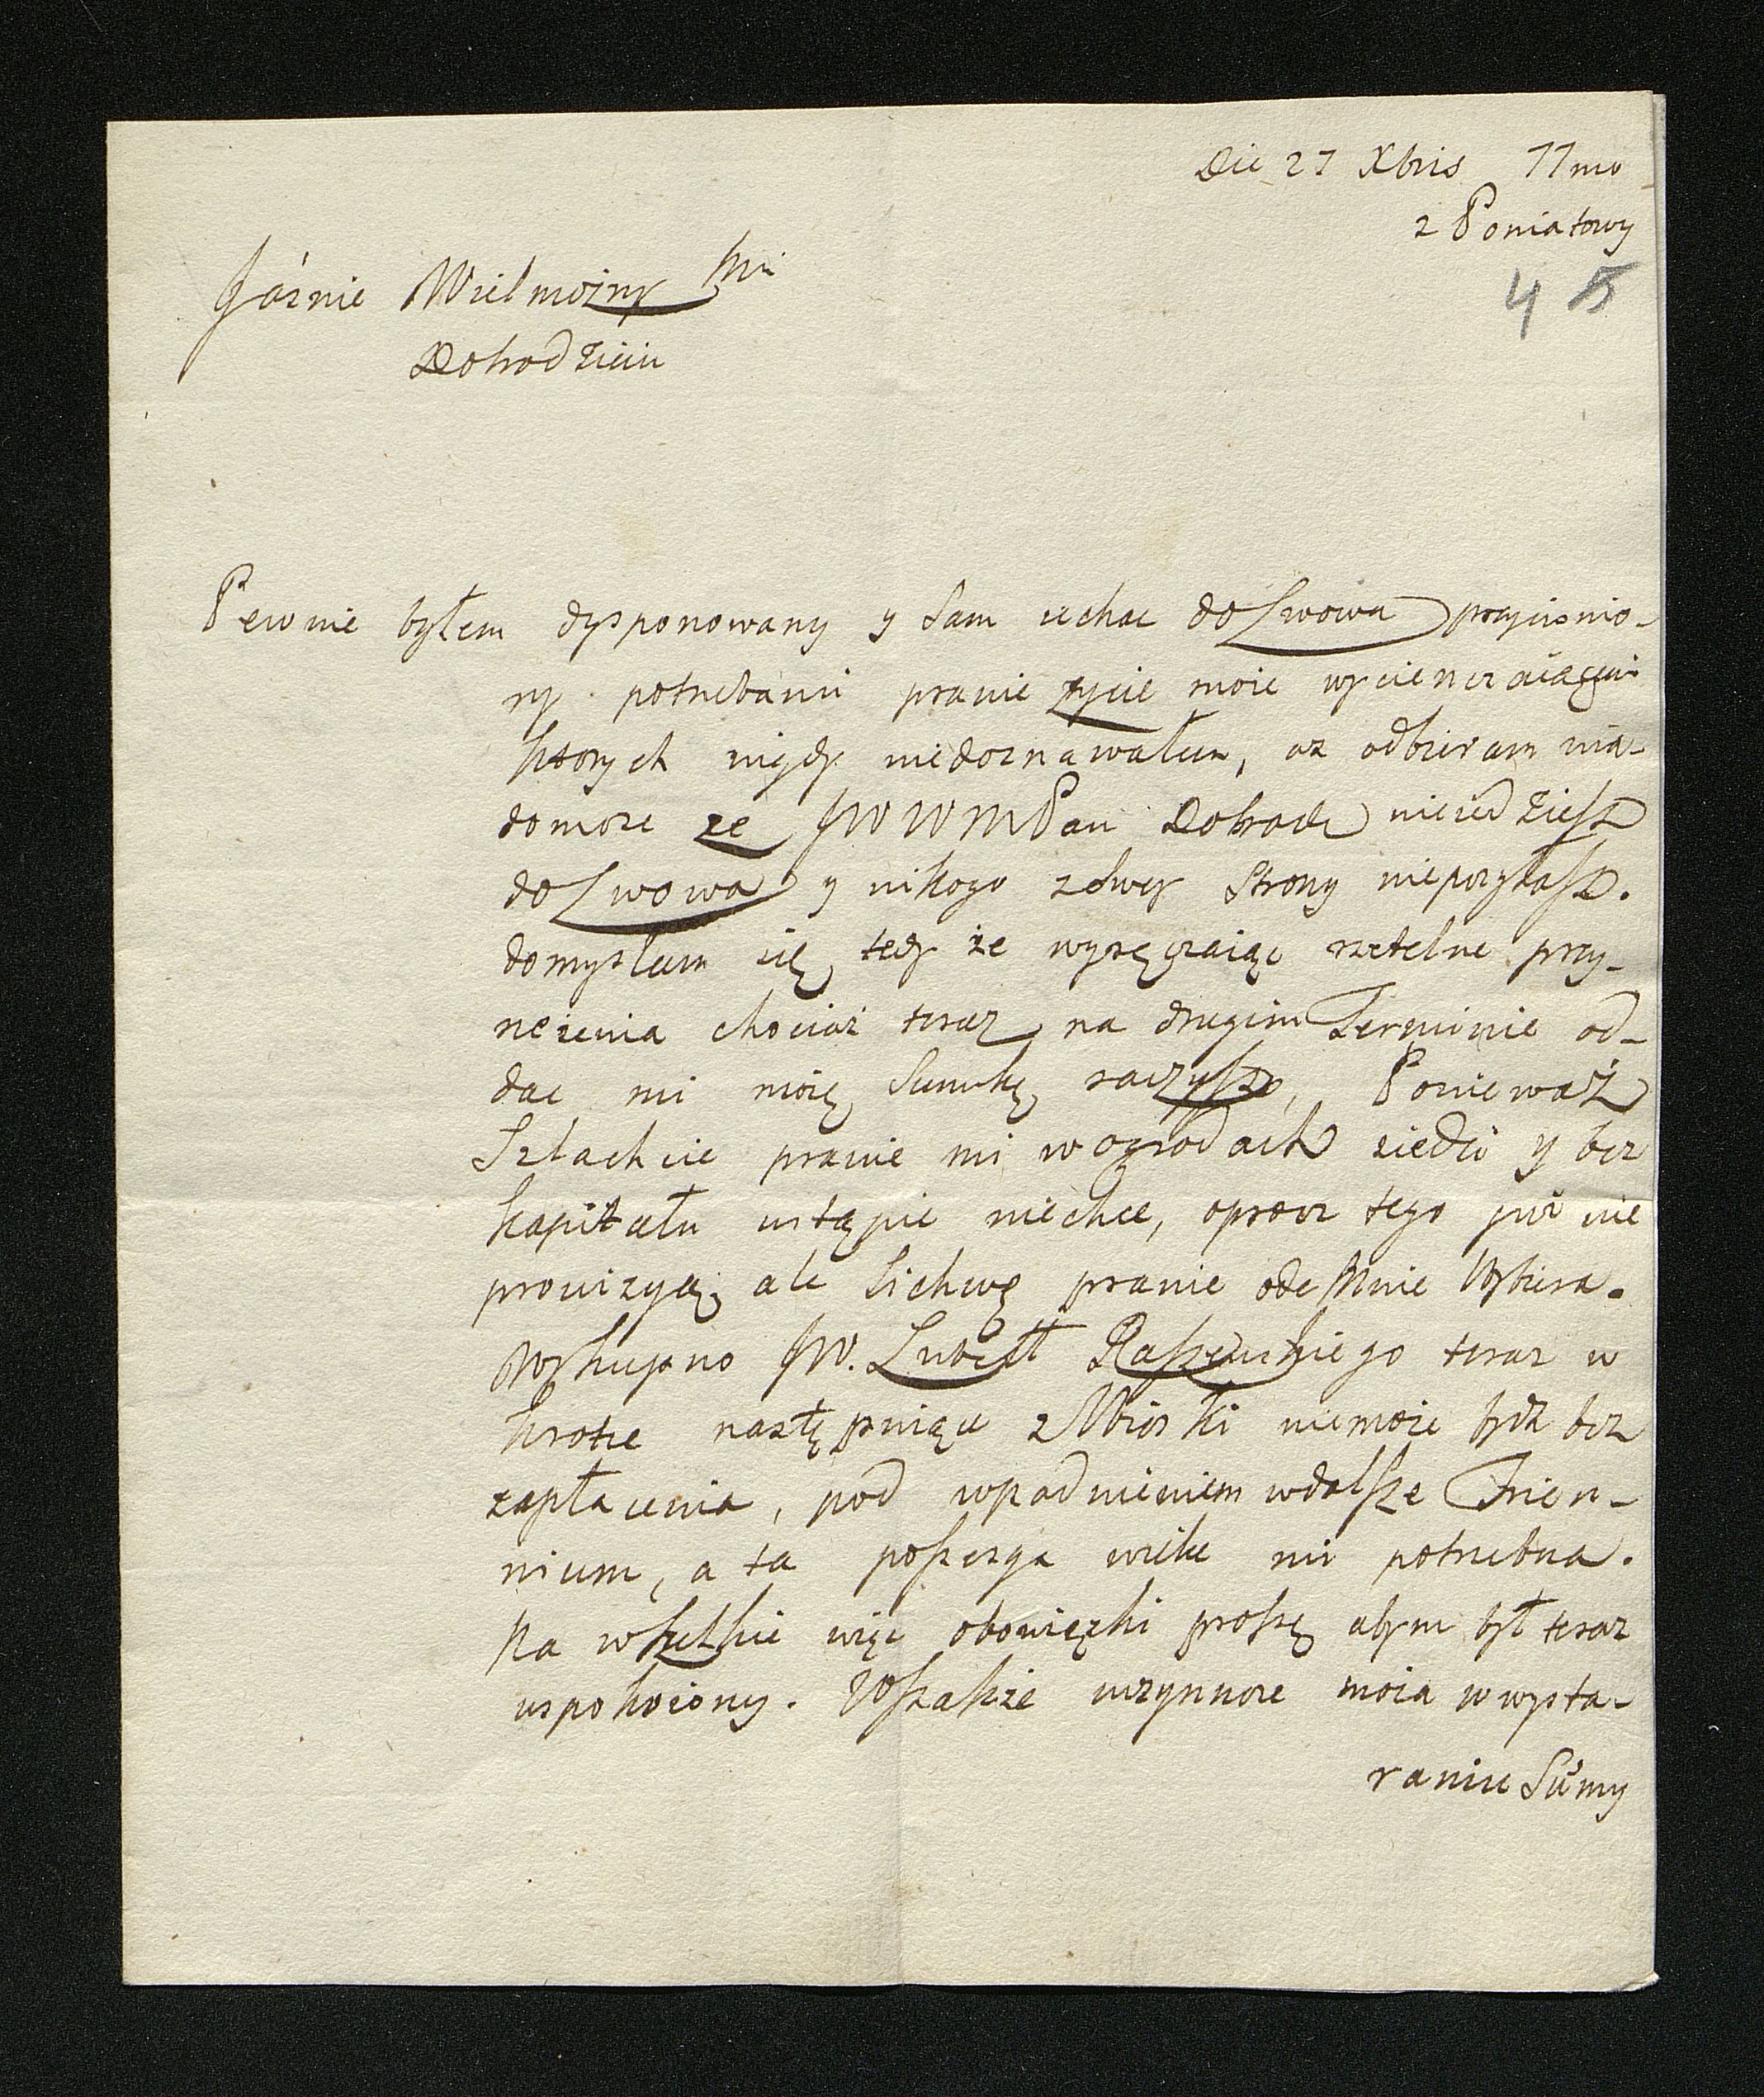 Die 27 Xbris 77mo
z Poniatowy
4 5
Jásnie Wielmożny Mci
Dobrodzieiu
Pewnie byłem dysponowany y sam iechac do Lwowa przycisnio-
ny potrzebami prawie zycie moie wycienczaiącemi
ktorych nigdy niedoznawałem, az odbieram wia-
domosc ze JWWMPan Dobrodz nieiedziesz
do Lwowa y nikogo zdwey strony nieprzysłasz.
domyslam się tedy że wysęczaiąc rzetelne przy-
rzeżenia chociaż teraz na drugim Terminie od-
dac mi moię Summę raczysz, Ponieważ
Szlachcic prawie mi w ogrodach siedzi y bez
kapitału ustąpic niechce, oprocz tego już nie
prowizyą, ale lichwę prawie ode Mnie Wybiera.
Wykupno JW. Lubelt Raszewskiego teraz w
krotce nastąpuiące z Wioski niemoże bydź bez
zapłacenia, pod wpadnieniem w dalsze Trien-
nium, a ta possesya wielce mi potrzebna.
Na wszelkie więc obowiązki proszę abym był teraz
uspokoiony. Wszakże uczynnosc moia w wysta-
raniu Summy